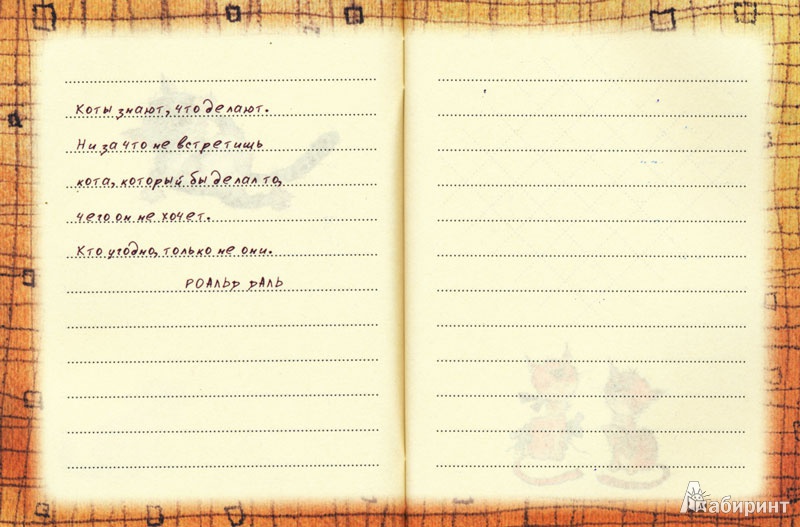 Коты знают, что делают.
Ни за что не встретишь
кота, который бы делал то,
чего он не хочет.
Кто угодно, только не они.
РОАЛЬД ДАЛЬ
Лабиринт